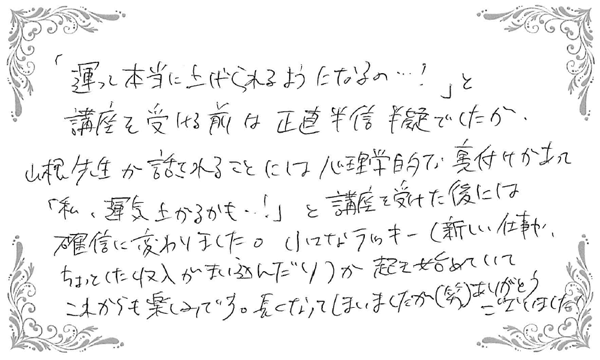 「運って本当に上げられるようになるの…!」と
講座を受ける前は正直半信半疑でしたが、
山根先生が話されることには心理学的な裏付けがあって
「私、運気上がるかも…!」と講座を受けた後には
確信に変わりました。小さなラッキー(新しい仕事が、
ちょっとした収入がまい込んだり)が起き始めていて
これからも楽しみです。長くなってしまいましたが(笑)ありがとう
ございました。